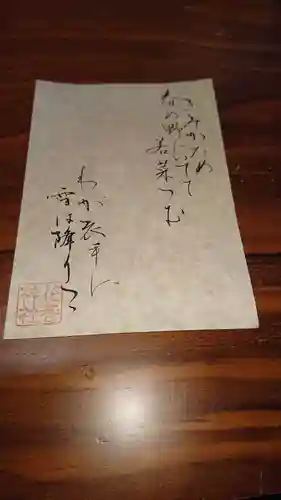 きみがため
春の野にいでて
若菜つむ
わが衣手に
雪は降りつゝ